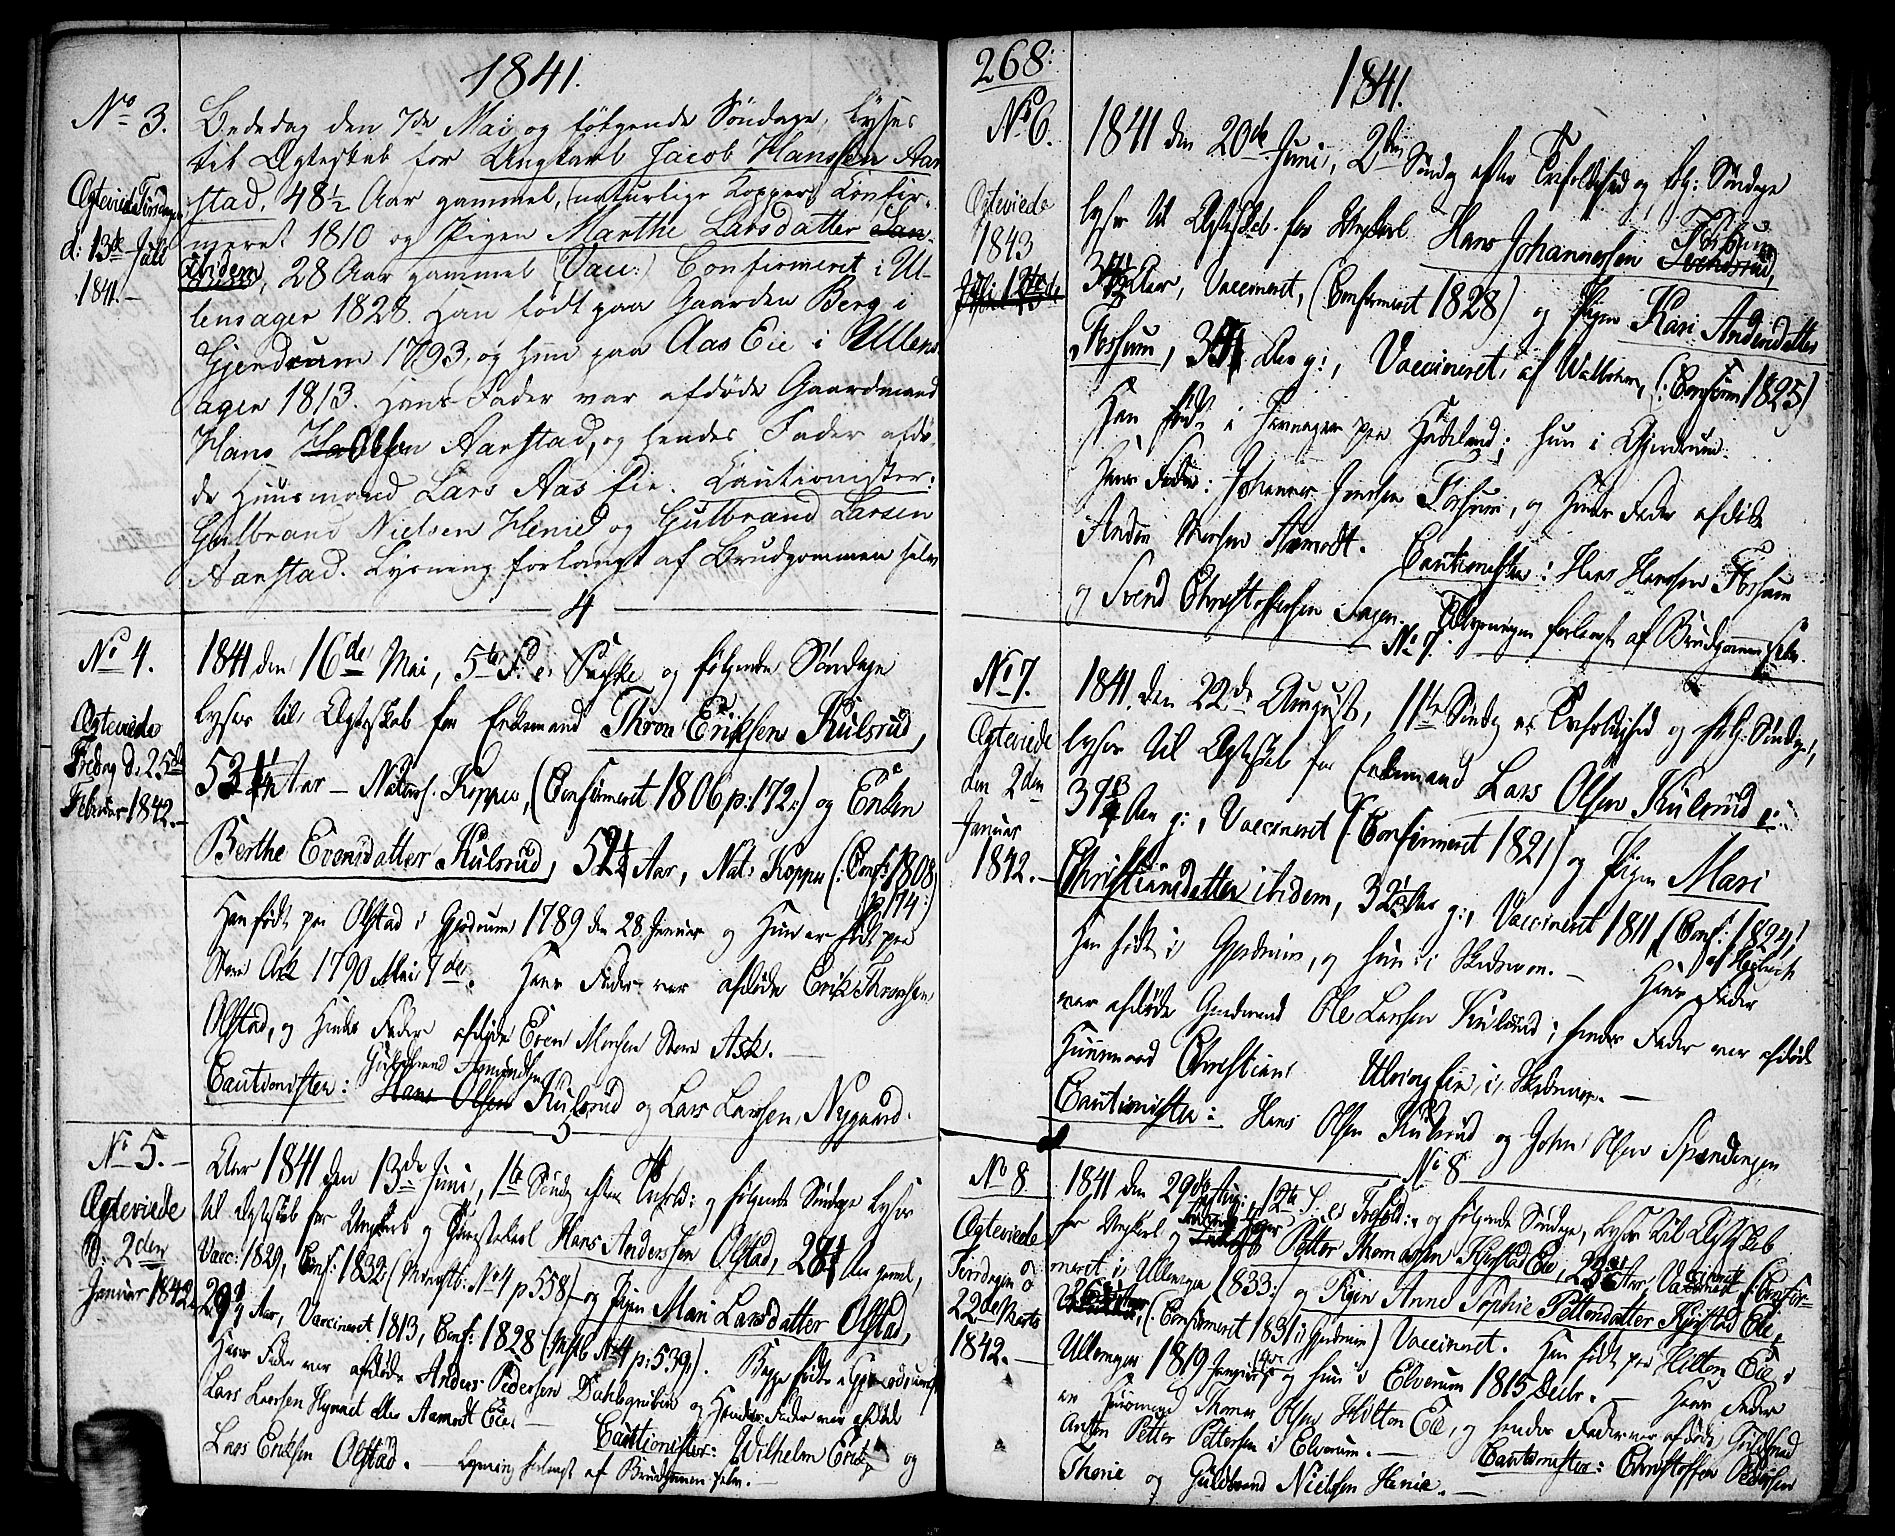 1841.
No 3.
Bededag den 7de Mai og følgende Søndage, lyses
til Ægteskab for Ungkarl Jacob Hanssen Aar-
stad, 48½ Aar gammel, (naturlige Kopper) Confir-
Ægteviede Tirsdagen
d: 13de Juli
1841.-
meret 1810 og Pigen Marthe Larsdatter
ibidem, 28 Aar gammel (Vac:) Confirmeret i Ul-
lensager 1828. Han født paa Gaarden Berg i
Gjendrum 1793, og hun paa Aas Eie i Ullens-
ager 1813. Hans Fader var afdøde Gaardmand
Hans Olsen Aarstad, og hendes Fader afdø-
de Huusmand Lars Aas Eie. Cautionister:
Gulbrand Nielsen Henie og Gulbrand Larsen
Aarstad. Lysning forlangt af Brudgommen selv
4
No 4.
1841 den 16de Mai, 5te S. e. Paaske og følgende Søndage
lyses til Ægteskab for Enkemand Thron Eriksen Kulsrud,
Ægteviede
Fredag d: 25de
Februar 1842.-
53¼ Aar - Naturl. Kopper, (Confirmeret 1806 p: 172:) og Enken
Berthe Evensdatter Kulsrud, 52¼ Aar, Nat: Kopper (: Conf: 1808
p 174:)
Han født paa Olstad i Gjerdrum 1789 den 28. Januar og Hun er født paa
Store Ask 1790 Mai 7de. Hans Fader var afdøde Erik Thronsen
Olstad, og Hendes Fader afdøde Even Monsen Store Ask.-
Gulbrand Amundsen
Cautionister: Hans Olsen Kulsrud og Lars Larsen Nygaard.
5
No 5.-
Aar 1841 den 13de Juni, 1te Søndag efter Trefold: og følgende Søndage lyses
til Ægteskab for Ungkarl og Gaardkarl Hans Anderssen Olstad, 28¼ Aar gaml,
Ægteviede
d: 2den
Januar 1842.
Vacc: 1829, Conf: 1832: (Ministb: No 4 p 558) - og Pigen Mari Larsdatter Olstad,
29¼ Aar, Vaccineret 1813, Conf: 1828 (Mstb No 4 p: 539:). Begge fødte i Gjerdrum
Hans Fader var afdøde Anders Pedersen Dahlsgruben og Hendes Fader var afdøde
Lars Larsen Hynnet eller Aamodt Eie. - Cautionister: Wilhelm og
Lars Eriksen Olstad. - Lysning forlangt af Brudgommen selv.-
268:
1841.
No 6.
1841 den 20de Juni, 2den Søndag efter Trefoldighed og følg: Søndage
Ægteviede
1843
lyses til Ægteskab for Ungkarl Hans Johannessen FosSum
31½ Aar, Vaccineret, (Confirmeret 1828) og Pigen Kari Andersdatter
Fossum, 34 Aar g:, Vaccineret af Wallsten, (: Confirm 1825)
Han født i Jevnager paa Hadeland; hun i Gjerdrum.
Hans Fader: Johannes Jensen Fossum, og Hendes Fader afdøde
Anders Aamodt. Cautionister: Hans Hanssen Fossum
og Svend Christophersen Sagen. Lysningen forlangt af Brudgommen selv.
No 7.
No 7.
1841. den 22de August, 11te Søndag e: Trefoldighed og følg: Søndage,
Ægteviede
den 2den
Januar
1842.-
lyses til Ægteskab for Enkemand Lars Olsen Kulsrud
37¾ Aar g:, Vaccineret (: Confirmeret 1821) og Pigen Mari
Christiansdatter ibidem, 32½ Aar g:, Vaccineret 1811 (Conf: 1824)
Han født i Gjerdrum, og hun i Skedsmo.- Hans Fader
var afdøde Gaardmand Ole Larssen Kulsrud; hendes Fader var afdøde
Huusmand Christian Ulvingeie i Skedsmoe.-
Cautionister: Hans Olsen Kulsrud og John Olsen Spændingen
No 8
No 8.
1841 den 29de Aug: 12te S. e: Trefold: og følgende Søndage, lyses til Ægteskab
for Ungkarl og Petter Thomassen Kjerstad Eie, Aar, Vaccineret (: Confir-
Ægteviede
Tirsdagen
22de Marts
1842.-
meret i Ullensager 1833: og Pigen Anne Sophie Pettersdatter Kjerstad Eie,
26 Aar, (: Confirmeret 1831 i Gjerdrum) Vaccineret. Han født paa Hilton Eie i
Ullensager 1819 og hun i Elverum 1815 Decbr.- Hans Fader
er Huusmand Thomas Olsen Hilton Eie, og hendes Fader var afdøde Guldsmed
Petter Pettersen i Elverum.- Cautionister: Christoffer
Thorie og Guldbrand Nielssen Henie.-